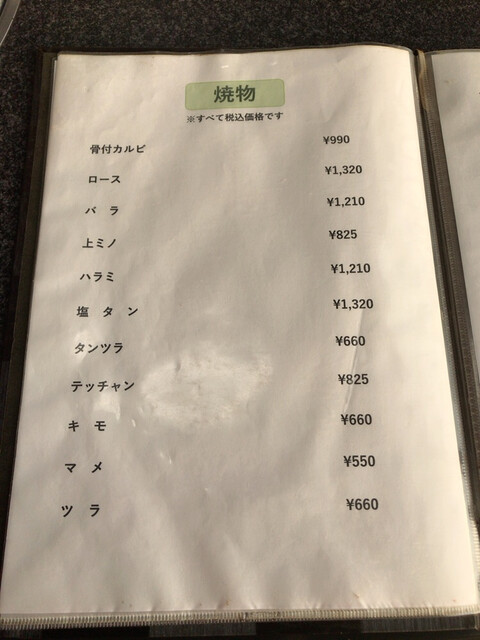 焼物
※すべて税込価格です
骨付カルビ ¥990
ロース ¥1,320
バラ ¥1,210
上ミノ ¥825
ハラミ ¥1,210
塩 タ ン ¥1,320
タンツラ ¥660
テッチャン ¥825
キ モ ¥660
マ メ ¥550
ツ ラ ¥660